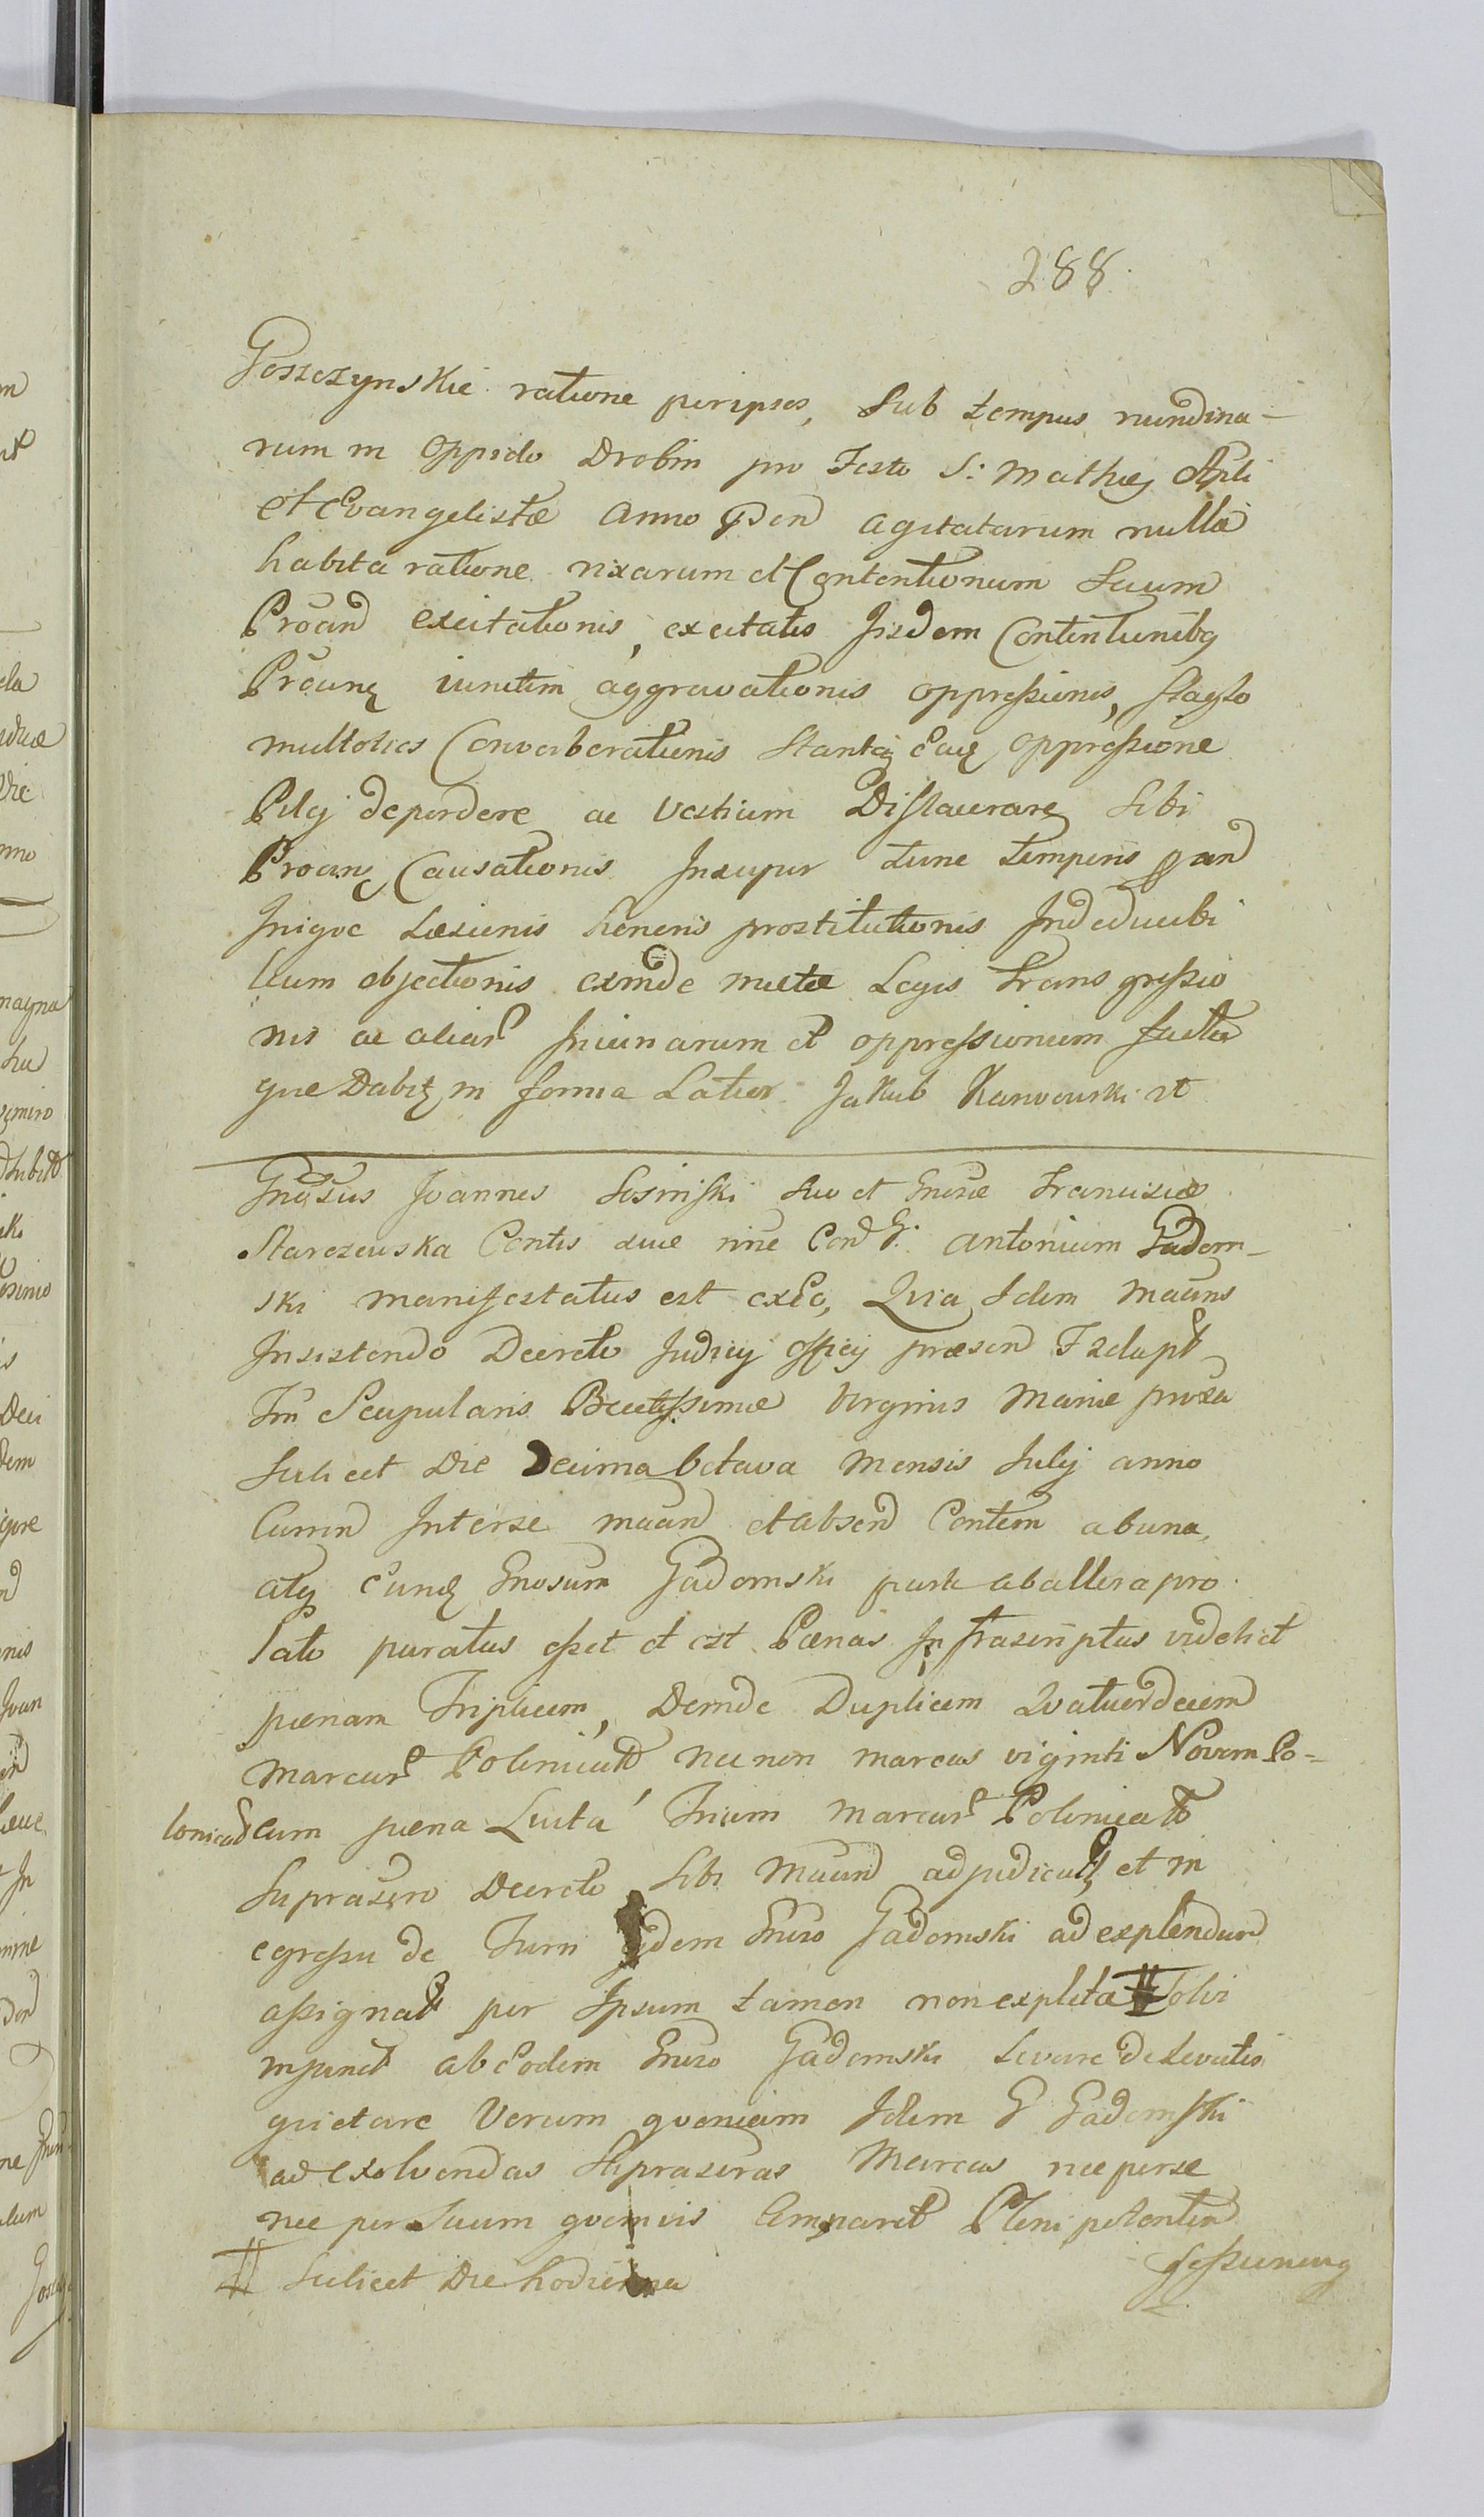 288.
Goszczynskie ratione per ipsos, Sub tempus nundina-
rum in Oppido Drobin pro Festo S: Mathęj Apli
et Evangelistæ Anno Pden agitatarum nulla
habita ratione rixarum et Contentionum Suum
Proand excitationis, excitatis Jisdem Contentionibg
Proung iunctim aggravationis oppreßionis,
multoties Converberationis Stantę eaq oppreßione
Pilej deperdere ac Vestium sibi
Proang Causationis Insuper tunc temporis
Læsionis honoris prostitutionis Indeducibi
lium objectionis exinde mictæ Legis Transgreßio
nis ac aliar Iniuriarum et oppreßionum facta
que Dabit in forma Latior Jakub Karwowski
Gnosus Joannes Sosinski suo et Gnosæ Franciscæ
Starczewska Contis suæ nne Con G: Antonium Gadom-
ski manifestatus est exeo, Quia Idem maans
Insistendo Decreto Judicij Officij præsen
Fm Scapularis Beatißimæ Virginis Mariæ proxa
scilicet Die Decima octava Mensis Julij anno
Curren Interse maand et absend Contem ab una,
atq eunq Gnosum Gadomski parte ab altera pro
lato paratus eßet et est Pænas Infrascriptas videlicet
pænam Triplicem, Deinde Duplicem Quatuordecim
marcar Polonicat nec non marcas viginti Novem Po-
lonicad cum pæna Luita Trium marcar Polonicat
Suprascro Decreto Sibi Maand adjudicat et in
egreßu de Turri eidem Gnoso Gadomski ad explendum
aßignat per Ipsum tamen non expleta # Solvi
injunct ab Eodem Gnoso Gadomski Levare de Levatis
quietare Verum quoniam Idem G Gadomski
ad exolvendas Suprascras Marcas nec per se
nec per Suum quemvis Comparet Plenipotenten
# Scilicet Die hodierna